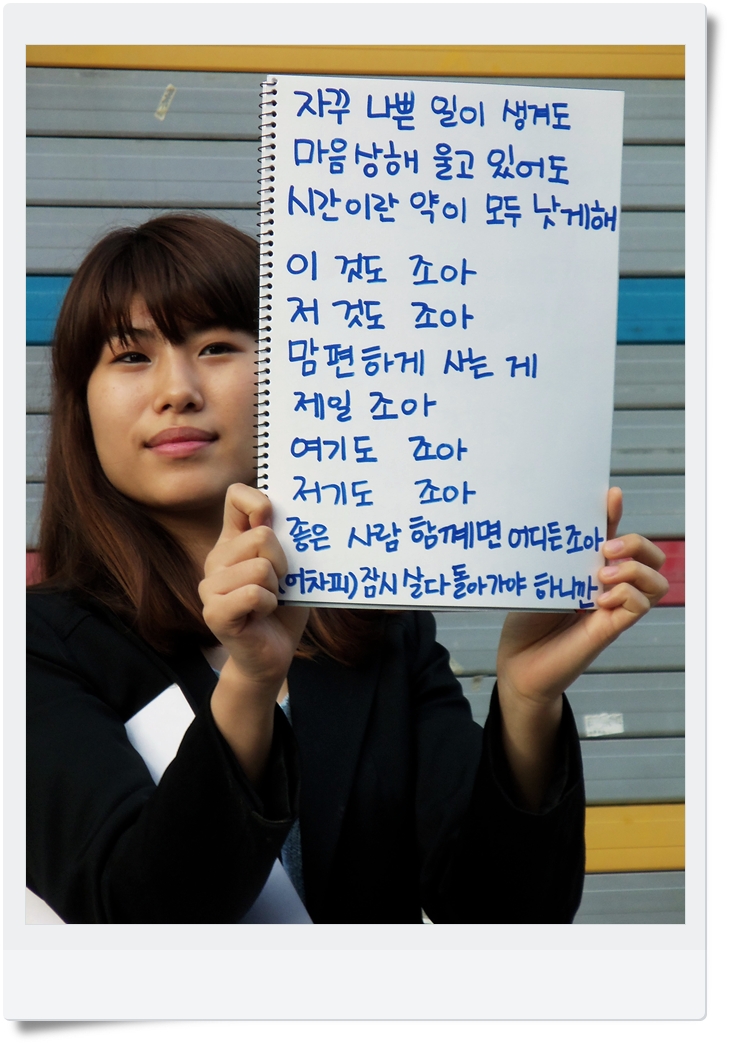 자꾸 나쁜 일이 생겨도
마음상해 울고 있어도
시간이란 약이 모두 낫게해
이 것도 조아
저 것도 조아
맘편하게 사는 게
제일 조아
여기도 조아
저기도 조아
좋은 사람 함께면 어디든조아
(어차피)잠시살다돌아가야 하니깐